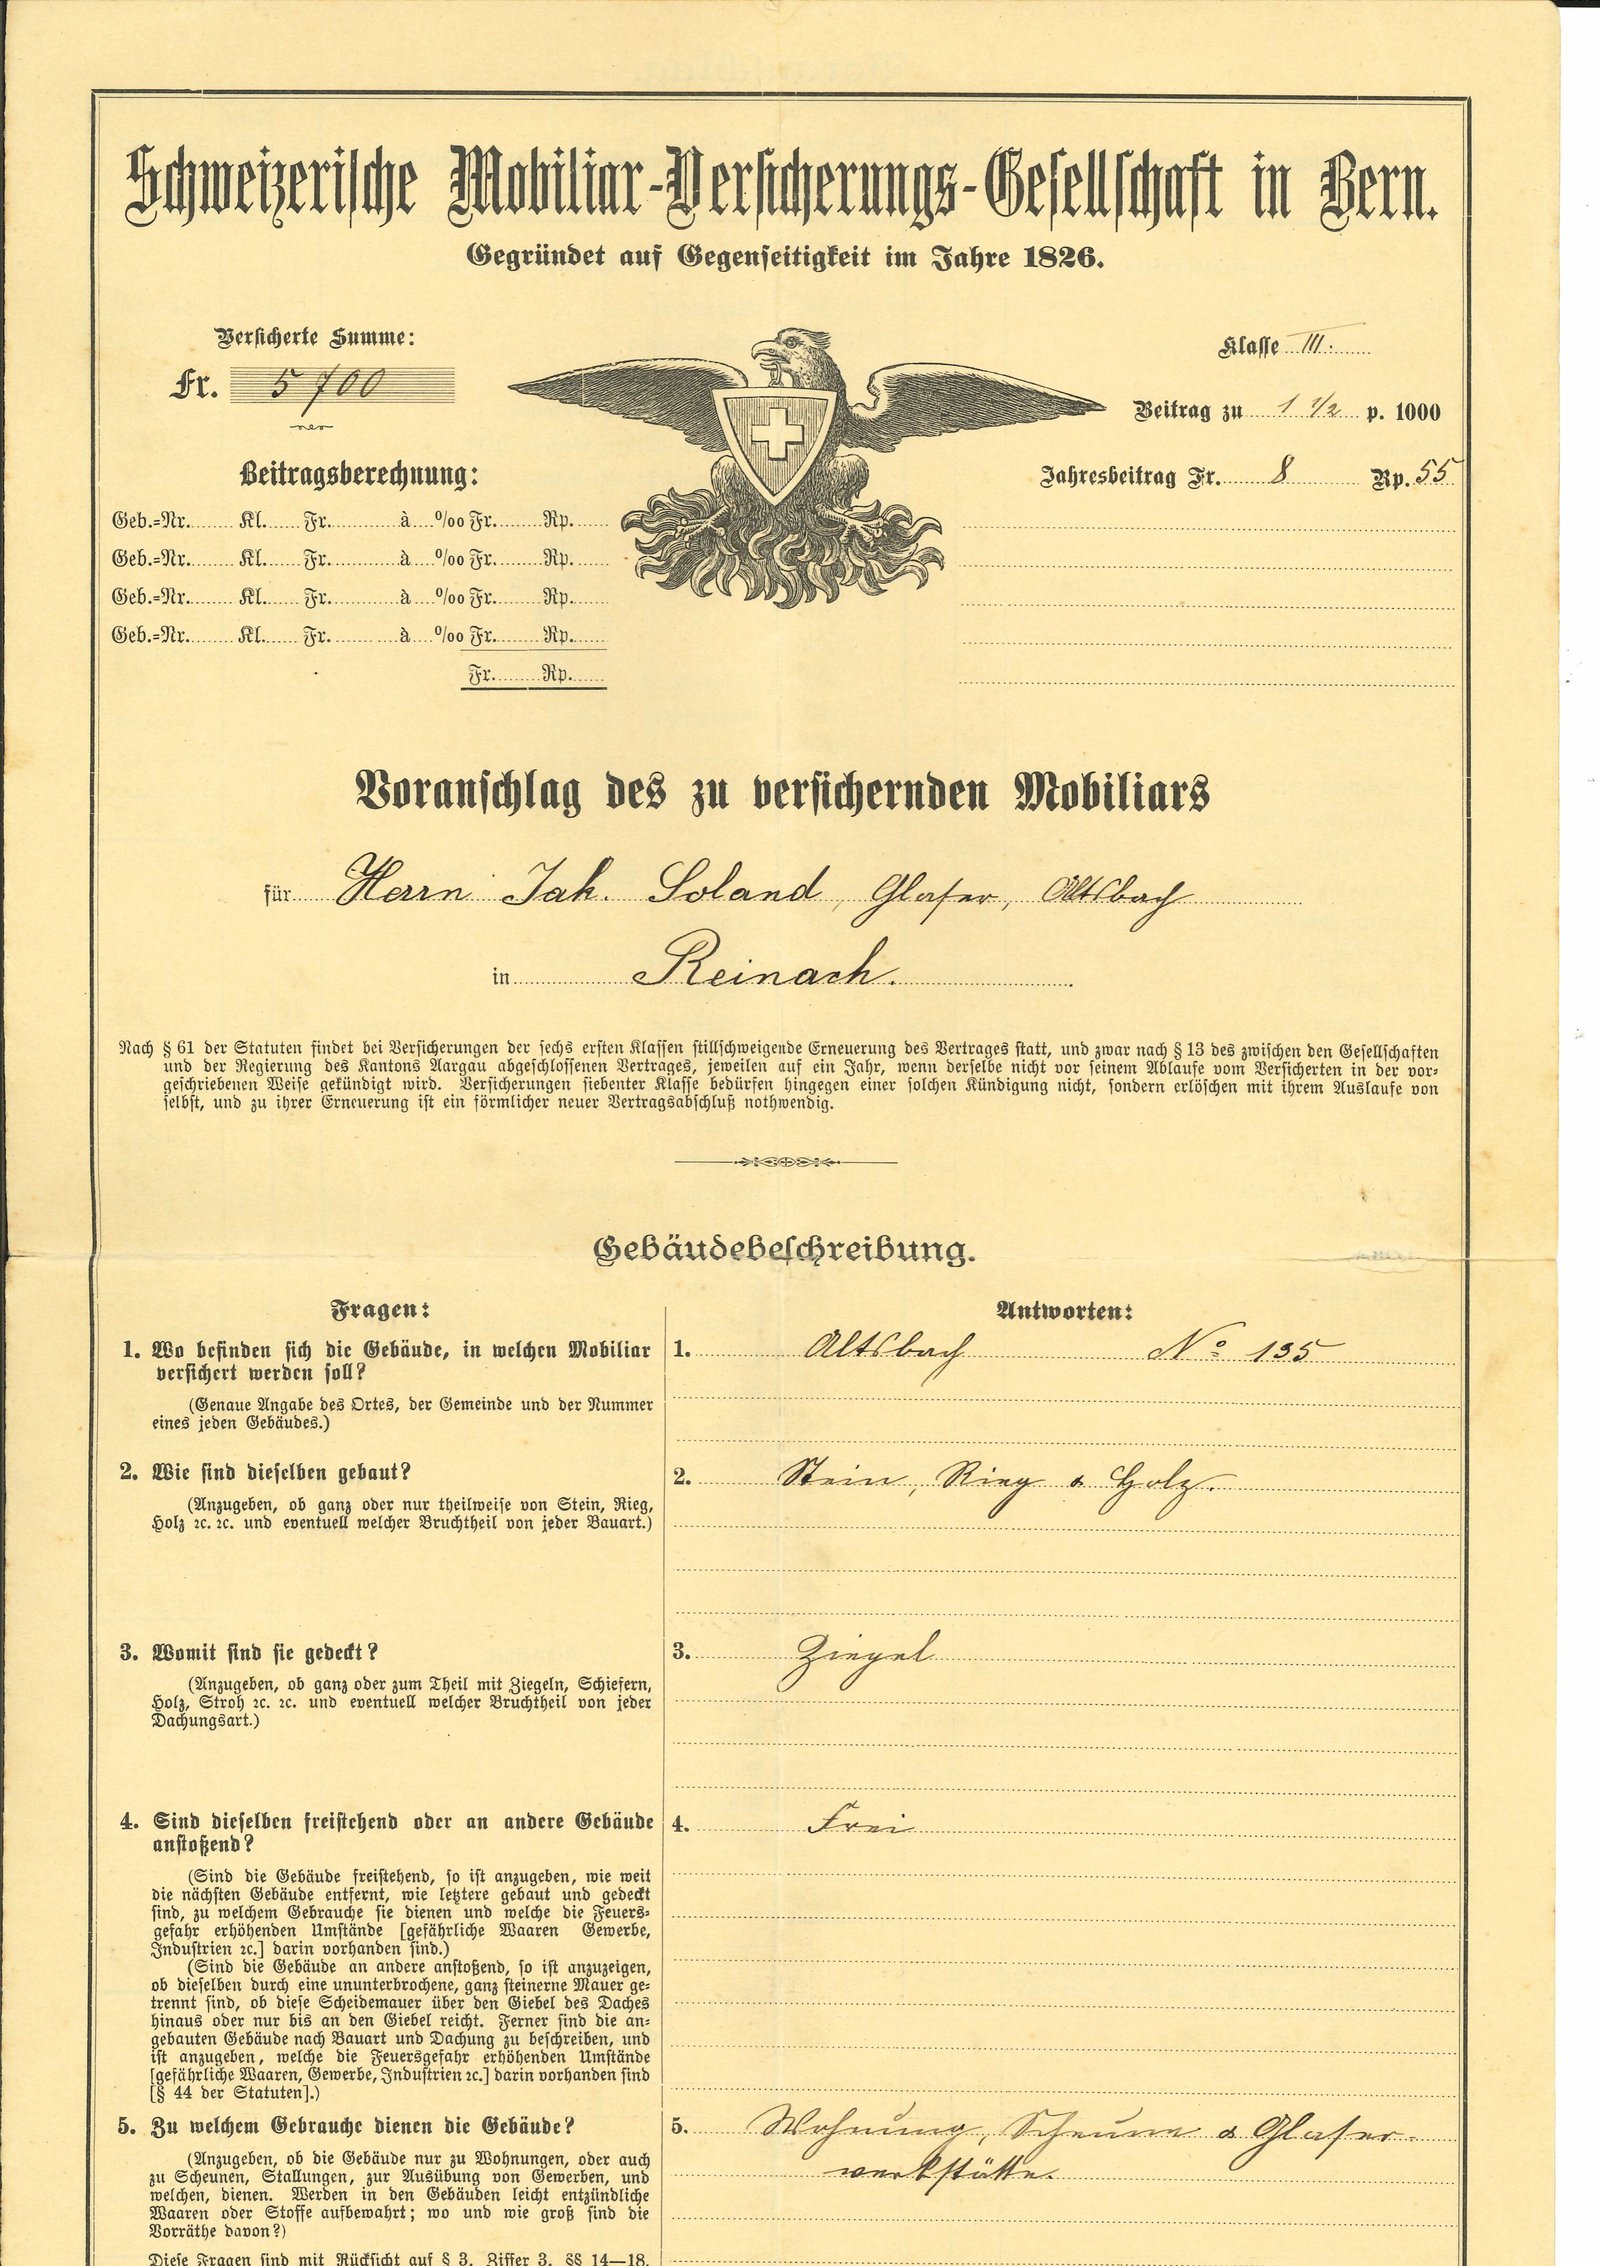 Schweizerische Mobiliar-Versicherungs-Gesellschaft in Bern.
Gegründet auf Gegenseitigkeit im Jahre 1826.
Versicherte Summe:
Fr. 5700
Klasse III.
Beitrag zu 1 1/2 p. 1000
Beitragsberechnung:
Jahresbeitrag Fr. 8 Rp. 55
Geb.-Nr. Kl. Fr. à %00 Fr. Rp.
Geb.-Nr. Kl. Fr. à %00 Fr. Rp.
Geb.-Nr. Kl. Fr. à %00 Fr. Rp.
Geb.-Nr. Kl. Fr. à %00 Fr. Rp.
Fr. Rp.
Voranschlag des zu versichernden Mobiliars
für Herrn Jak. Soland, Glaser, Altsbach
in Reinach.
Nach § 61 der Statuten findet bei Versicherungen der sechs ersten Klassen stillschweigende Erneuerung des Vertrages statt, und zwar nach § 13 des zwischen den Gesellschaften
und der Regierung des Kantons Aargau abgeschlossenen Vertrages, jeweilen auf ein Jahr, wenn derselbe nicht vor seinem Ablaufe vom Versicherten in der vor-
geschriebenen Weise gekündigt wird. Versicherungen siebenter Klasse bedürfen hingegen einer solchen Kündigung nicht, sondern erlöschen mit ihrem Auslaufe von
selbst, und zu ihrer Erneuerung ist ein förmlicher neuer Vertragsabschluß nothwendig.
Gebäudebeschreibung.
Fragen:
1. Wo befinden sich die Gebäude, in welchen Mobiliar
versichert werden soll?
(Genaue Angabe des Ortes, der Gemeinde und der Nummer
eines jeden Gebäudes.)
2. Wie sind dieselben gebaut?
(Anzugeben, ob ganz oder nur theilweise von Stein, Rieg,
Holz 2c. 2c. und eventuell welcher Bruchtheil von jeder Bauart.)
3. Womit sind sie gedeckt?
(Anzugeben, ob ganz oder zum Theil mit Ziegeln, Schiefern,
Holz, Stroh 2c. 2c. und eventuell welcher Bruchtheil von jeder
Dachungsart.)
4. Sind dieselben freistehend oder an andere Gebäude
anstoßend?
(Sind die Gebäude freistehend, so ist anzugeben, wie weit
die nächsten Gebäude entfernt, wie letztere gebaut und gedeckt
sind, zu welchem Gebrauche sie dienen und welche die Feuers-
gefahr erhöhenden Umstände [gefährliche Waaren Gewerbe,
Industrien 2c.] darin vorhanden sind.)
(Sind die Gebäude an andere anstoßend, so ist anzuzeigen,
ob dieselben durch eine ununterbrochene, ganz steinerne Mauer ge-
trennt sind, ob diese Scheidemauer über den Giebel des Daches
hinaus oder nur bis an den Giebel reicht. Ferner sind die an-
gebauten Gebäude nach Bauart und Dachung zu beschreiben, und
ist anzugeben, welche die Feuersgefahr erhöhenden Umstände
[gefährliche Waaren, Gewerbe, Industrien 2c.] darin vorhanden sind
[§ 44 der Statuten].)
5. Zu welchem Gebrauche dienen die Gebäude?
(Anzugeben, ob die Gebäude nur zu Wohnungen, oder auch
zu Scheunen, Stallungen, zur Ausübung von Gewerben, und
welchen, dienen. Werden in den Gebäuden leicht entzündliche
Waaren oder Stoffe aufbewahrt; wo und wie groß sind die
Vorräthe davon?)
Diese Fragen sind mit Rücksicht auf § 3, Ziffer 3, §§ 14—18,
Antworten:
1. Altsbach No 135
2. Stein, Rieg & Holz.
3. Ziegel
4. Frei
5. Wohnung, Scheune & Glaser-
werkstätte.